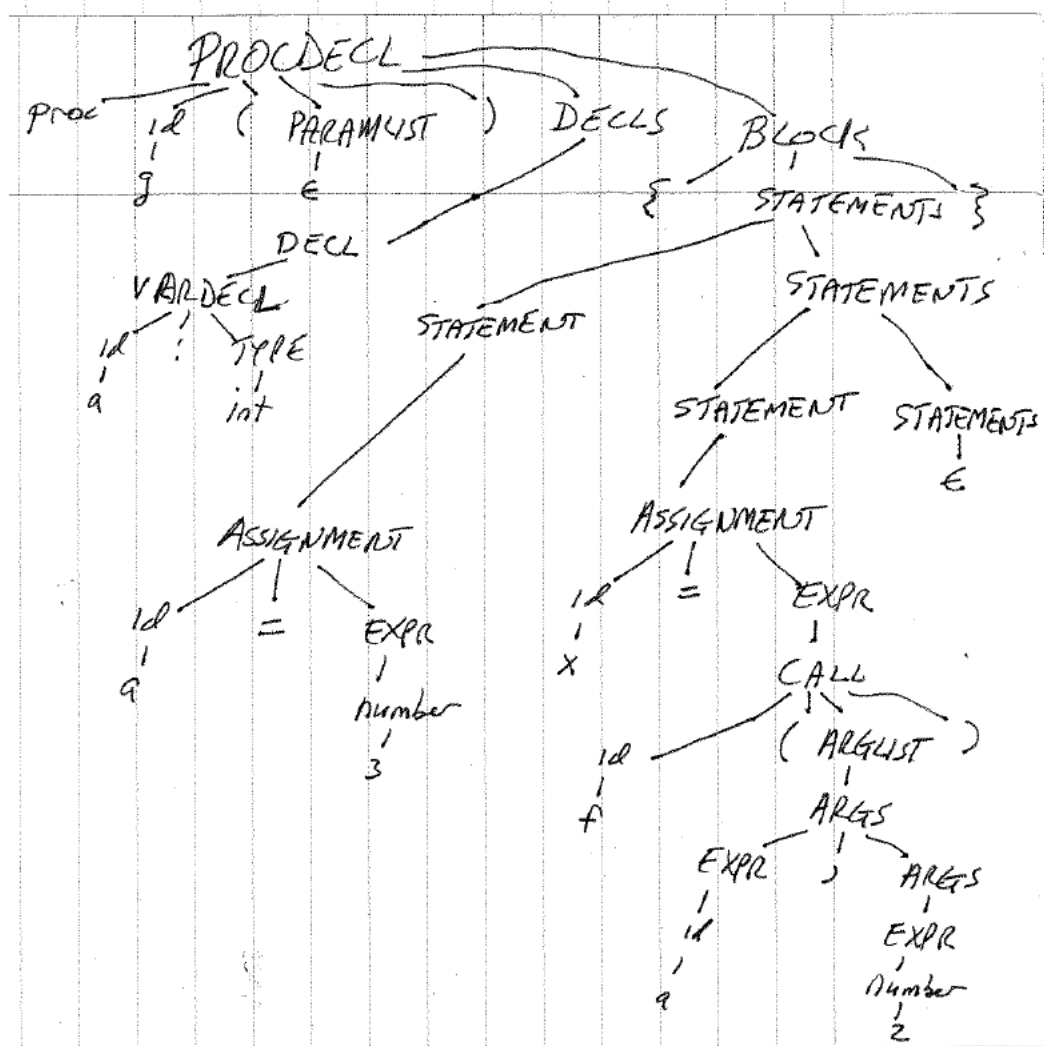 PROCDECL
proc id ( PARAMLIST ) DECLS BLOCK
g ε { STATEMENTS }
DECL
VARDECL STATEMENTS
STATEMENT
id : TYPE
a int STATEMENT STATEMENTS
ε
ASSIGNMENT ASSIGNMENT
id = EXPR id = EXPR
a number x CALL
3 id ( ARGLIST )
f ARGS
EXPR , ARGS
id EXPR
a number
2